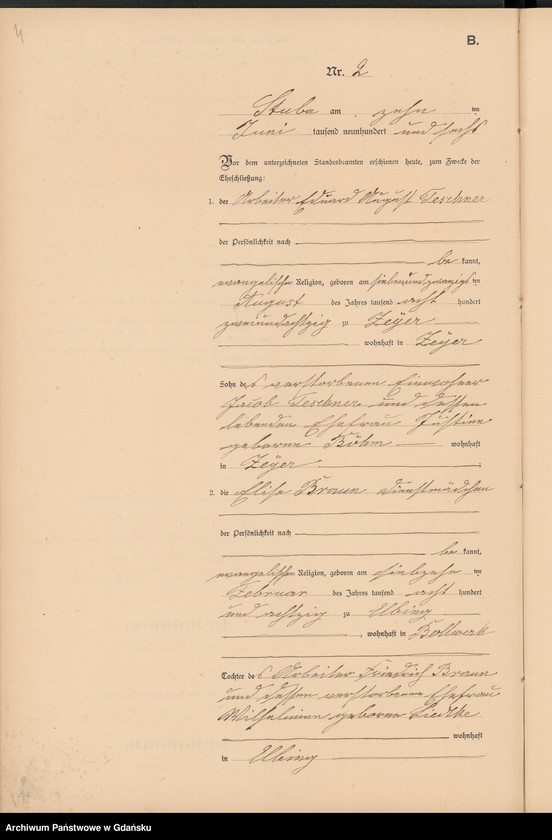 4
B.
Nr. 2
Stuba am zehn ten
Juni tausend neunhundert und sechs
Vor dem unterzeichneten Standesbeamten erschienen heute, zum Zwecke der
Eheschließung:
1. der Arbeiter Eduard August Teschner
der Persönlichkeit nach
be kannt,
evangelischer Religion, geboren am siebenundzwanzigs ten
August des Jahres tausend acht hundert
zweiundachtzig zu Zeyer
, wohnhaft in Zeyer
Sohn des verstorbenen Einwohner
Jacob Teschner und dessen
lebenden Ehefrau Justine
geborene Böhm wohnhaft
in Zeyer
2. die Elise Braun Dienstmädchen
der Persönlichkeit nach
be kannt,
evangelischer Religion, geboren am siebzehn ten
Februar des Jahres tausend acht hundert
und achtzig zu Elbing
, wohnhaft in Bollwerk
Tochter des Arbeiter Friedrich Braun
und dessen verstorbene Ehefrau
Wilhelmine geborene Liedtke
wohnhaft
in Elbing
Archiwum Państwowe w Gdańsku